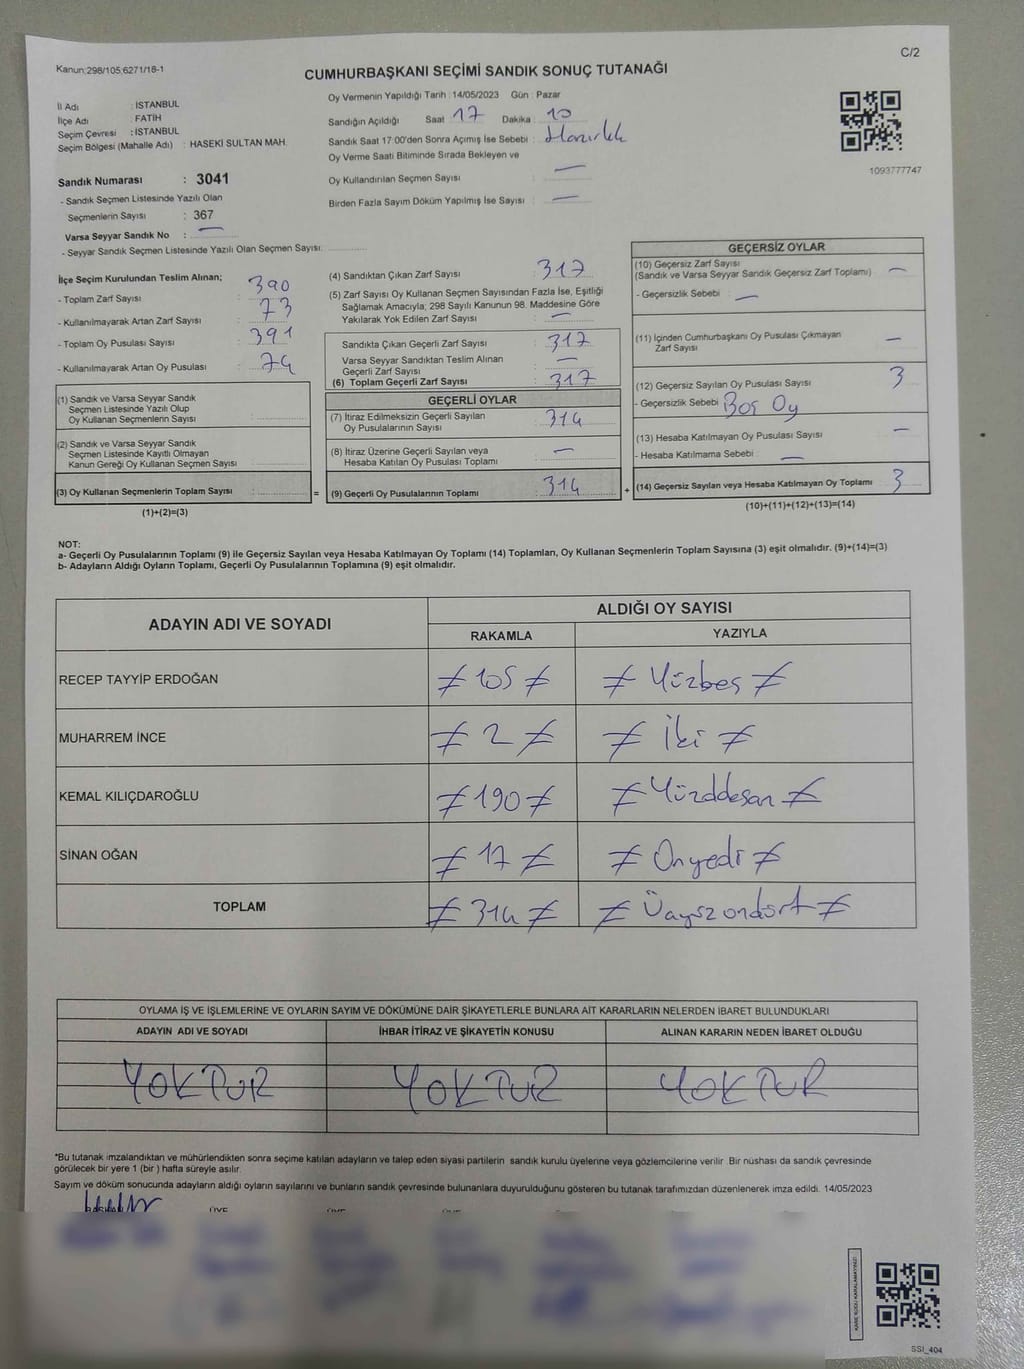 C/2
Kanun:298/105;6271/18-1
CUMHURBAŞKANI SEÇİMİ SANDIK SONUÇ TUTANAĞI
İl Adı : İSTANBUL
İlçe Adı : FATİH
Seçim Çevresi : İSTANBUL
Seçim Bölgesi (Mahalle Adı) : HASEKİ SULTAN MAH.
Sandık Numarası : 3041
- Sandık Seçmen Listesinde Yazılı Olan
Seçmenlerin Sayısı : 367
Varsa Seyyar Sandık No : —
- Seyyar Sandık Seçmen Listesinde Yazılı Olan Seçmen Sayısı:
Oy Vermenin Yapıldığı Tarih : 14/05/2023 Gün : Pazar
Sandığın Açıldığı Saat 17 Dakika 10
Sandık Saat 17:00'den Sonra Açımış İse Sebebi : Hazırlık
Oy Verme Saati Bitiminde Sırada Bekleyen ve
Oy Kullandırılan Seçmen Sayısı : —
Birden Fazla Sayım Döküm Yapılmış İse Sayısı : —
1093777747
İlçe Seçim Kurulundan Teslim Alınan;
- Toplam Zarf Sayısı : 390
- Kullanılmayarak Artan Zarf Sayısı : 73
- Toplam Oy Pusulası Sayısı : 391
- Kullanılmayarak Artan Oy Pusulası : 74
(1) Sandık ve Varsa Seyyar Sandık
Seçmen Listesinde Yazılı Olup
Oy Kullanan Seçmenlerin Sayısı :
(2) Sandık ve Varsa Seyyar Sandık
Seçmen Listesinde Kayıtlı Olmayan
Kanun Gereği Oy Kullanan Seçmen Sayısı :
(3) Oy Kullanan Seçmenlerin Toplam Sayısı : =
(1)+(2)=(3)
(4) Sandıktan Çıkan Zarf Sayısı : 317
(5) Zarf Sayısı Oy Kullanan Seçmen Sayısından Fazla İse, Eşitliği
Sağlamak Amacıyla; 298 Sayılı Kanunun 98. Maddesine Göre
Yakılarak Yok Edilen Zarf Sayısı : —
Sandıkta Çıkan Geçerli Zarf Sayısı : 317
Varsa Seyyar Sandıktan Teslim Alınan
Geçerli Zarf Sayısı : —
(6) Toplam Geçerli Zarf Sayısı : 317
GEÇERLİ OYLAR
(7) İtiraz Edilmeksizin Geçerli Sayılan
Oy Pusulalarının Sayısı : 314
(8) İtiraz Üzerine Geçerli Sayılan veya
Hesaba Katılan Oy Pusulası Toplamı : —
(9) Geçerli Oy Pusulalarının Toplamı : 314 +
GEÇERSİZ OYLAR
(10) Geçersiz Zarf Sayısı
(Sandık ve Varsa Seyyar Sandık Geçersiz Zarf Toplamı) —
- Geçersizlik Sebebi : —
(11) İçinden Cumhurbaşkanı Oy Pusulası Çıkmayan
Zarf Sayısı —
(12) Geçersiz Sayılan Oy Pusulası Sayısı 3
- Geçersizlik Sebebi : Boş Oy
(13) Hesaba Katılmayan Oy Pusulası Sayısı —
- Hesaba Katılmama Sebebi : —
(14) Geçersiz Sayılan veya Hesaba Katılmayan Oy Toplamı 3
(10)+(11)+(12)+(13)=(14)
NOT:
a- Geçerli Oy Pusulalarının Toplamı (9) ile Geçersiz Sayılan veya Hesaba Katılmayan Oy Toplamı (14) Toplamları, Oy Kullanan Seçmenlerin Toplam Sayısına (3) eşit olmalıdır. (9)+(14)=(3)
b- Adayların Aldığı Oyların Toplamı, Geçerli Oy Pusulalarının Toplamına (9) eşit olmalıdır.
ADAYIN ADI VE SOYADI
ALDIĞI OY SAYISI
RAKAMLA YAZIYLA
RECEP TAYYİP ERDOĞAN ≠ 105 ≠ ≠ Yüzbeş ≠
MUHARREM İNCE ≠ 2 ≠ ≠ İki ≠
KEMAL KILIÇDAROĞLU ≠ 190 ≠ ≠ Yüzddosan ≠
SİNAN OĞAN ≠ 17 ≠ ≠ Onyedi ≠
TOPLAM ≠ 314 ≠ ≠ Üçyüzondört ≠
OYLAMA İŞ VE İŞLEMLERİNE VE OYLARIN SAYIM VE DÖKÜMÜNE DAİR ŞİKAYETLERLE BUNLARA AİT KARARLARIN NELERDEN İBARET BULUNDUKLARI
ADAYIN ADI VE SOYADI İHBAR İTİRAZ VE ŞİKAYETİN KONUSU ALINAN KARARIN NEDEN İBARET OLDUĞU
YOKTUR YOKTUR YOKTUR
*Bu tutanak imzalandıktan ve mühürlendikten sonra seçime katılan adayların ve talep eden siyasi partilerin sandık kurulu üyelerine veya gözlemcilerine verilir. Bir nüshası da sandık çevresinde
görülecek bir yere 1 (bir ) hafta süreyle asılır.
Sayım ve döküm sonucunda adayların aldığı oyların sayılarını ve bunların sandık çevresinde bulunanlara duyurulduğunu gösteren bu tutanak tarafımızdan düzenlenerek imza edildi. 14/05/2023
BAŞKAN ÜYE ÜYE ÜYE
SSI_404